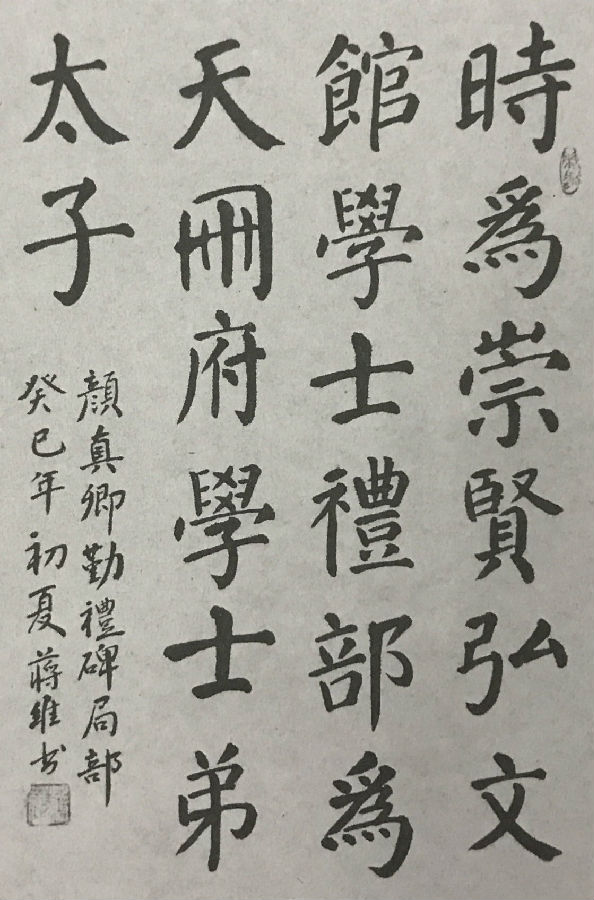 時爲崇賢弘文
館學士禮部爲
天冊府學士弟
太子
顏真卿勤禮碑局部
癸巳年初夏蔣維书